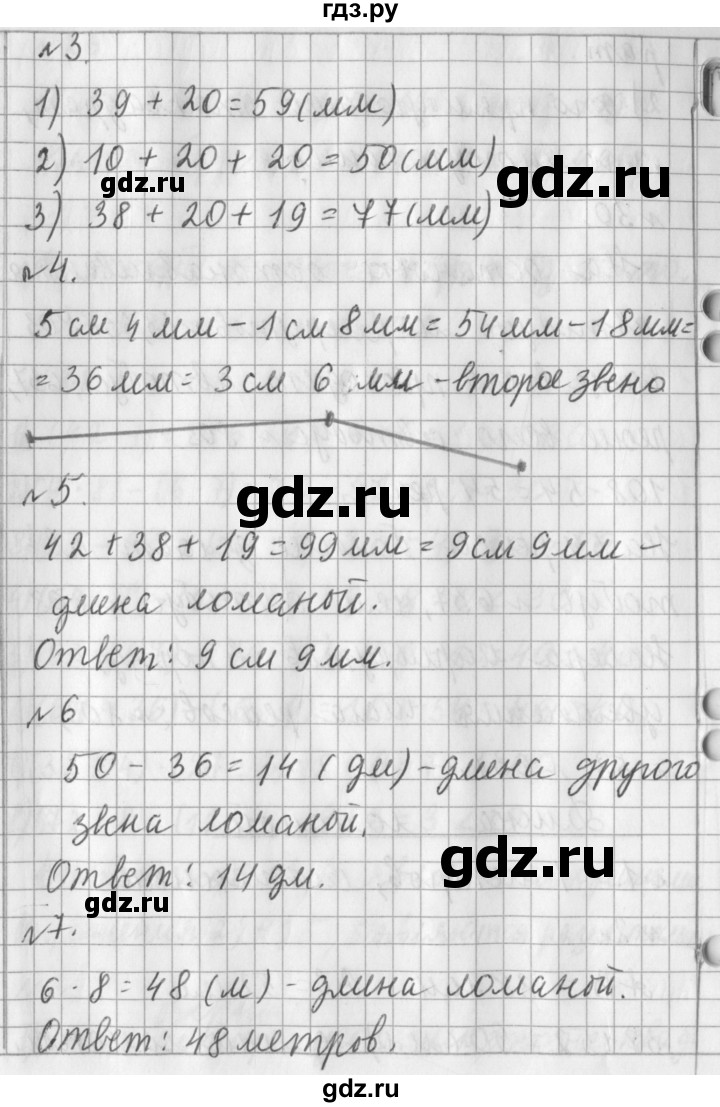 гдз.ру
№3.
1) 39 + 20 = 59 (мм)
2) 10 + 20 + 20 = 50 (мм)
gdz.ru
gdz.ru
3) 38 + 20 + 19 = 77 (мм)
№4.
5 см 4 мм - 1 см 8 мм = 54 мм - 18 мм =
= 36 мм = 3 см 6 мм - второе звено
№5.
gdz.ru
42 + 38 + 19 = 99 мм = 9 см 9 мм -
длина ломаной.
Ответ: 9 см 9 мм.
№6
50 - 36 = 14 (дм) - длина другого
звена ломаной.
gdz.ru
Ответ: 14 дм.
gdz.ru
№7.
6 · 8 = 48 (м) - длина ломаной.
Ответ: 48 метров.
gdz.ru